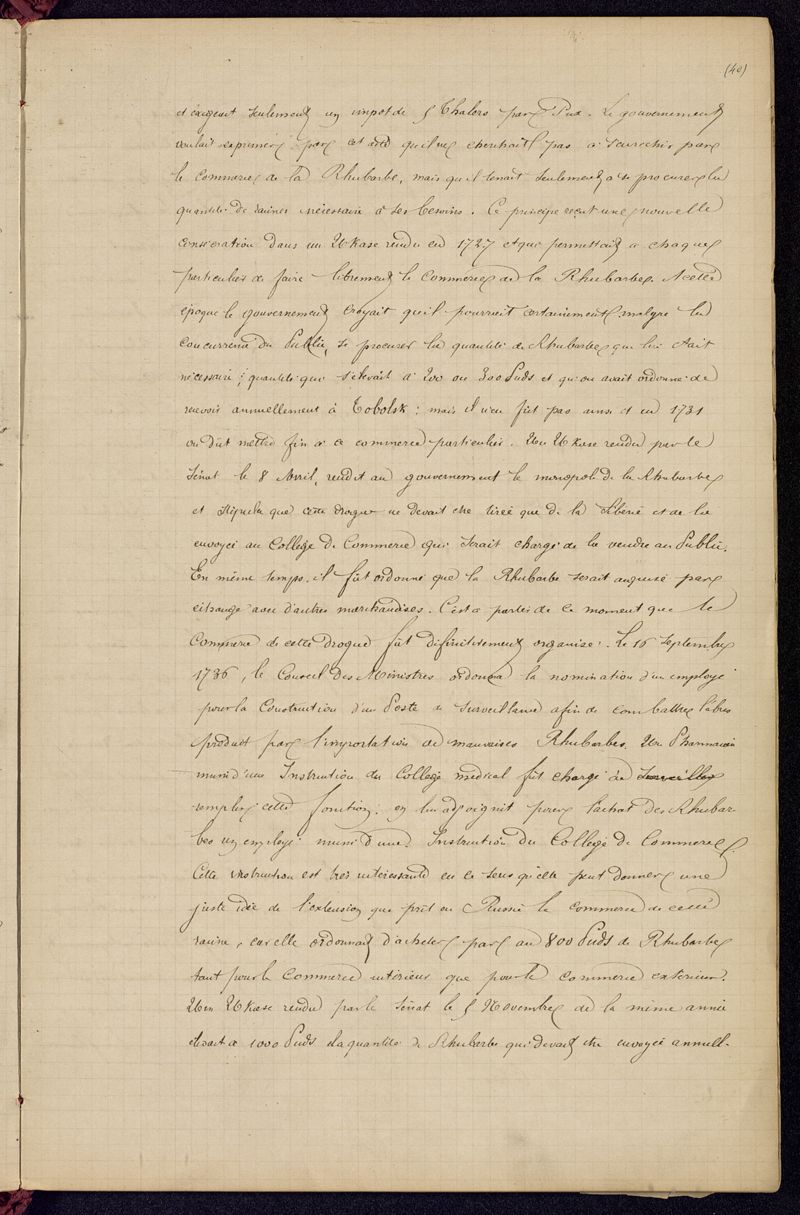 (40)
et exigeait seulement un impot de 5 Thalers par Pud. Le gouvernement
voulait exprimer par cet acte qu'il ne cherchait pas à s'enrichir par
le Commerce de la Rhubarbe, mais qu'il tenait seulement à se procurer la
quantité de racines nécessaire à ses besoins. Ce principe reçut une nouvelle
consécration dans un Ukase rendu en 1727 et qui permettait à chaque
particulier de faire librement le Commerce de la Rhubarbe. A cette
époque le gouvernement croyait qu'il pourrait certainement malgré la
Concurrence du Public, se procurer la quantité de Rhubarbe qui lui était
nécessaire ; quantité qui s'élevait à 200 ou 300 Puds et qu'on avait ordonné de
recevoir annuellement à Tobolsk : mais il n'en fût pas ainsi et en 1731
on dût mettre fin à ce commerce particulier. Un Ukase rendu par le
Sénat le 8 Avril, rendit au gouvernement le monopole de la Rhubarbe
et stipula que cette drogue ne devait être tirée que de la Sibérie et de là
envoyée au Collège de Commerce qui serait chargé de la vendre au Public.
En même temps, il fût ordonné que la Rhubarbe serait acquise par
échange avec d'autres marchandises. C'est à partir de ce moment que le
Commerce de cette drogue fût définitivement organisé. Le 16 Septembre
1736, le Conseil des Ministres ordonna la nomination d'un employé
pour la Construction d'un Poste de surveillance afin de combattre l'abus
produit par l'importation de mauvaises Rhubarbes. Un Pharmacien
muni d'une Instruction du Collège médical fût chargé de surveiller
remplir cette fonction : on lui adjoignit pour l'achat des Rhubar-
bes un employé muni d'une Instruction du Collège de Commerce.
Cette instruction est très intéressante en ce sens qu'elle peut donner une
juste idée de l'extension que prît en Russie le commerce de cette
racine, car elle ordonnait d'acheter par an 800 Puds de Rhubarbe
tant pour le Commerce intérieur que pour le commerce extérieur.
Un Ukase rendu par le Sénat le 5 Novembre de la même année
élevait à 1000 Puds la quantité de Rhubarbe qui devait être envoyée annuell-